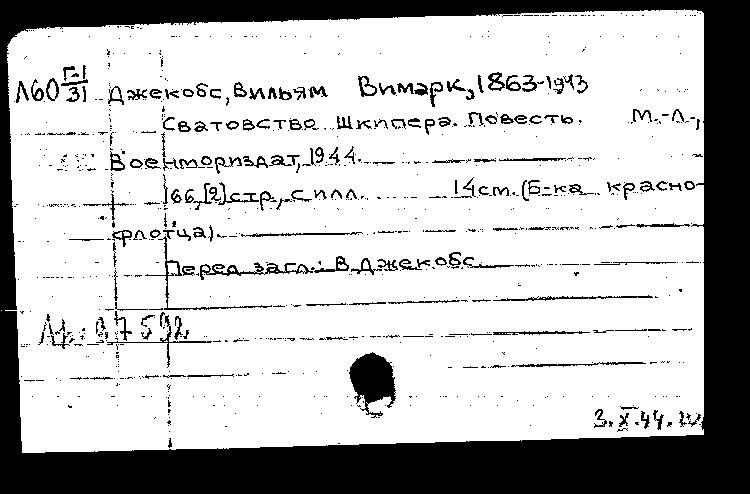 Л60 Г-1/31 Джекобс, Вильям Вимарк, 1863-1943
Сватовство Шкипера. Повесть. М.-Л.,
Военмориздат, 1944.
166,[2] стр., с илл. 14 см. (Б-ка красно-
флотца).
Перед загл.: В. Джекобс.
Ар: 37592
3.X.44.